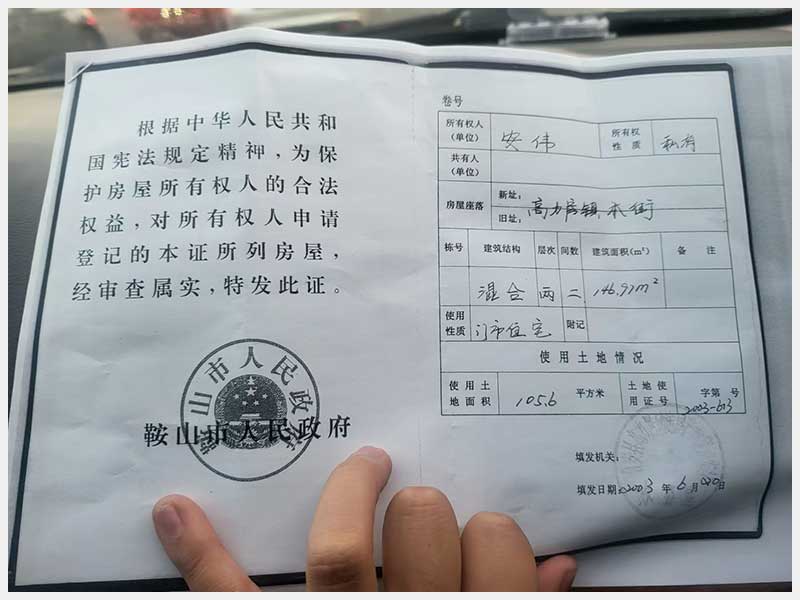 根据中华人民共和
国宪法规定精神，为保
护房屋所有权人的合法
权益，对所有权人申请
登记的本证所列房屋，
经审查属实，特发此证。
山市人民政
鞍山市人民政府
卷号
所有权人（单位） 安伟 所有权性质 私有
共有人（单位）
房屋座落 新址： 旧址： 高力房镇 街
栋号 建筑结构 层次 间数 建筑面积(m²) 备 注
混合 两 二 146.97m²
使用性质 门市住宅 附记
使用土地情况
使用土地面积 105.6 平方米 土地使用证号 字第 号
2003-613
填发机关：
填发日期：2003 年 6 月 日